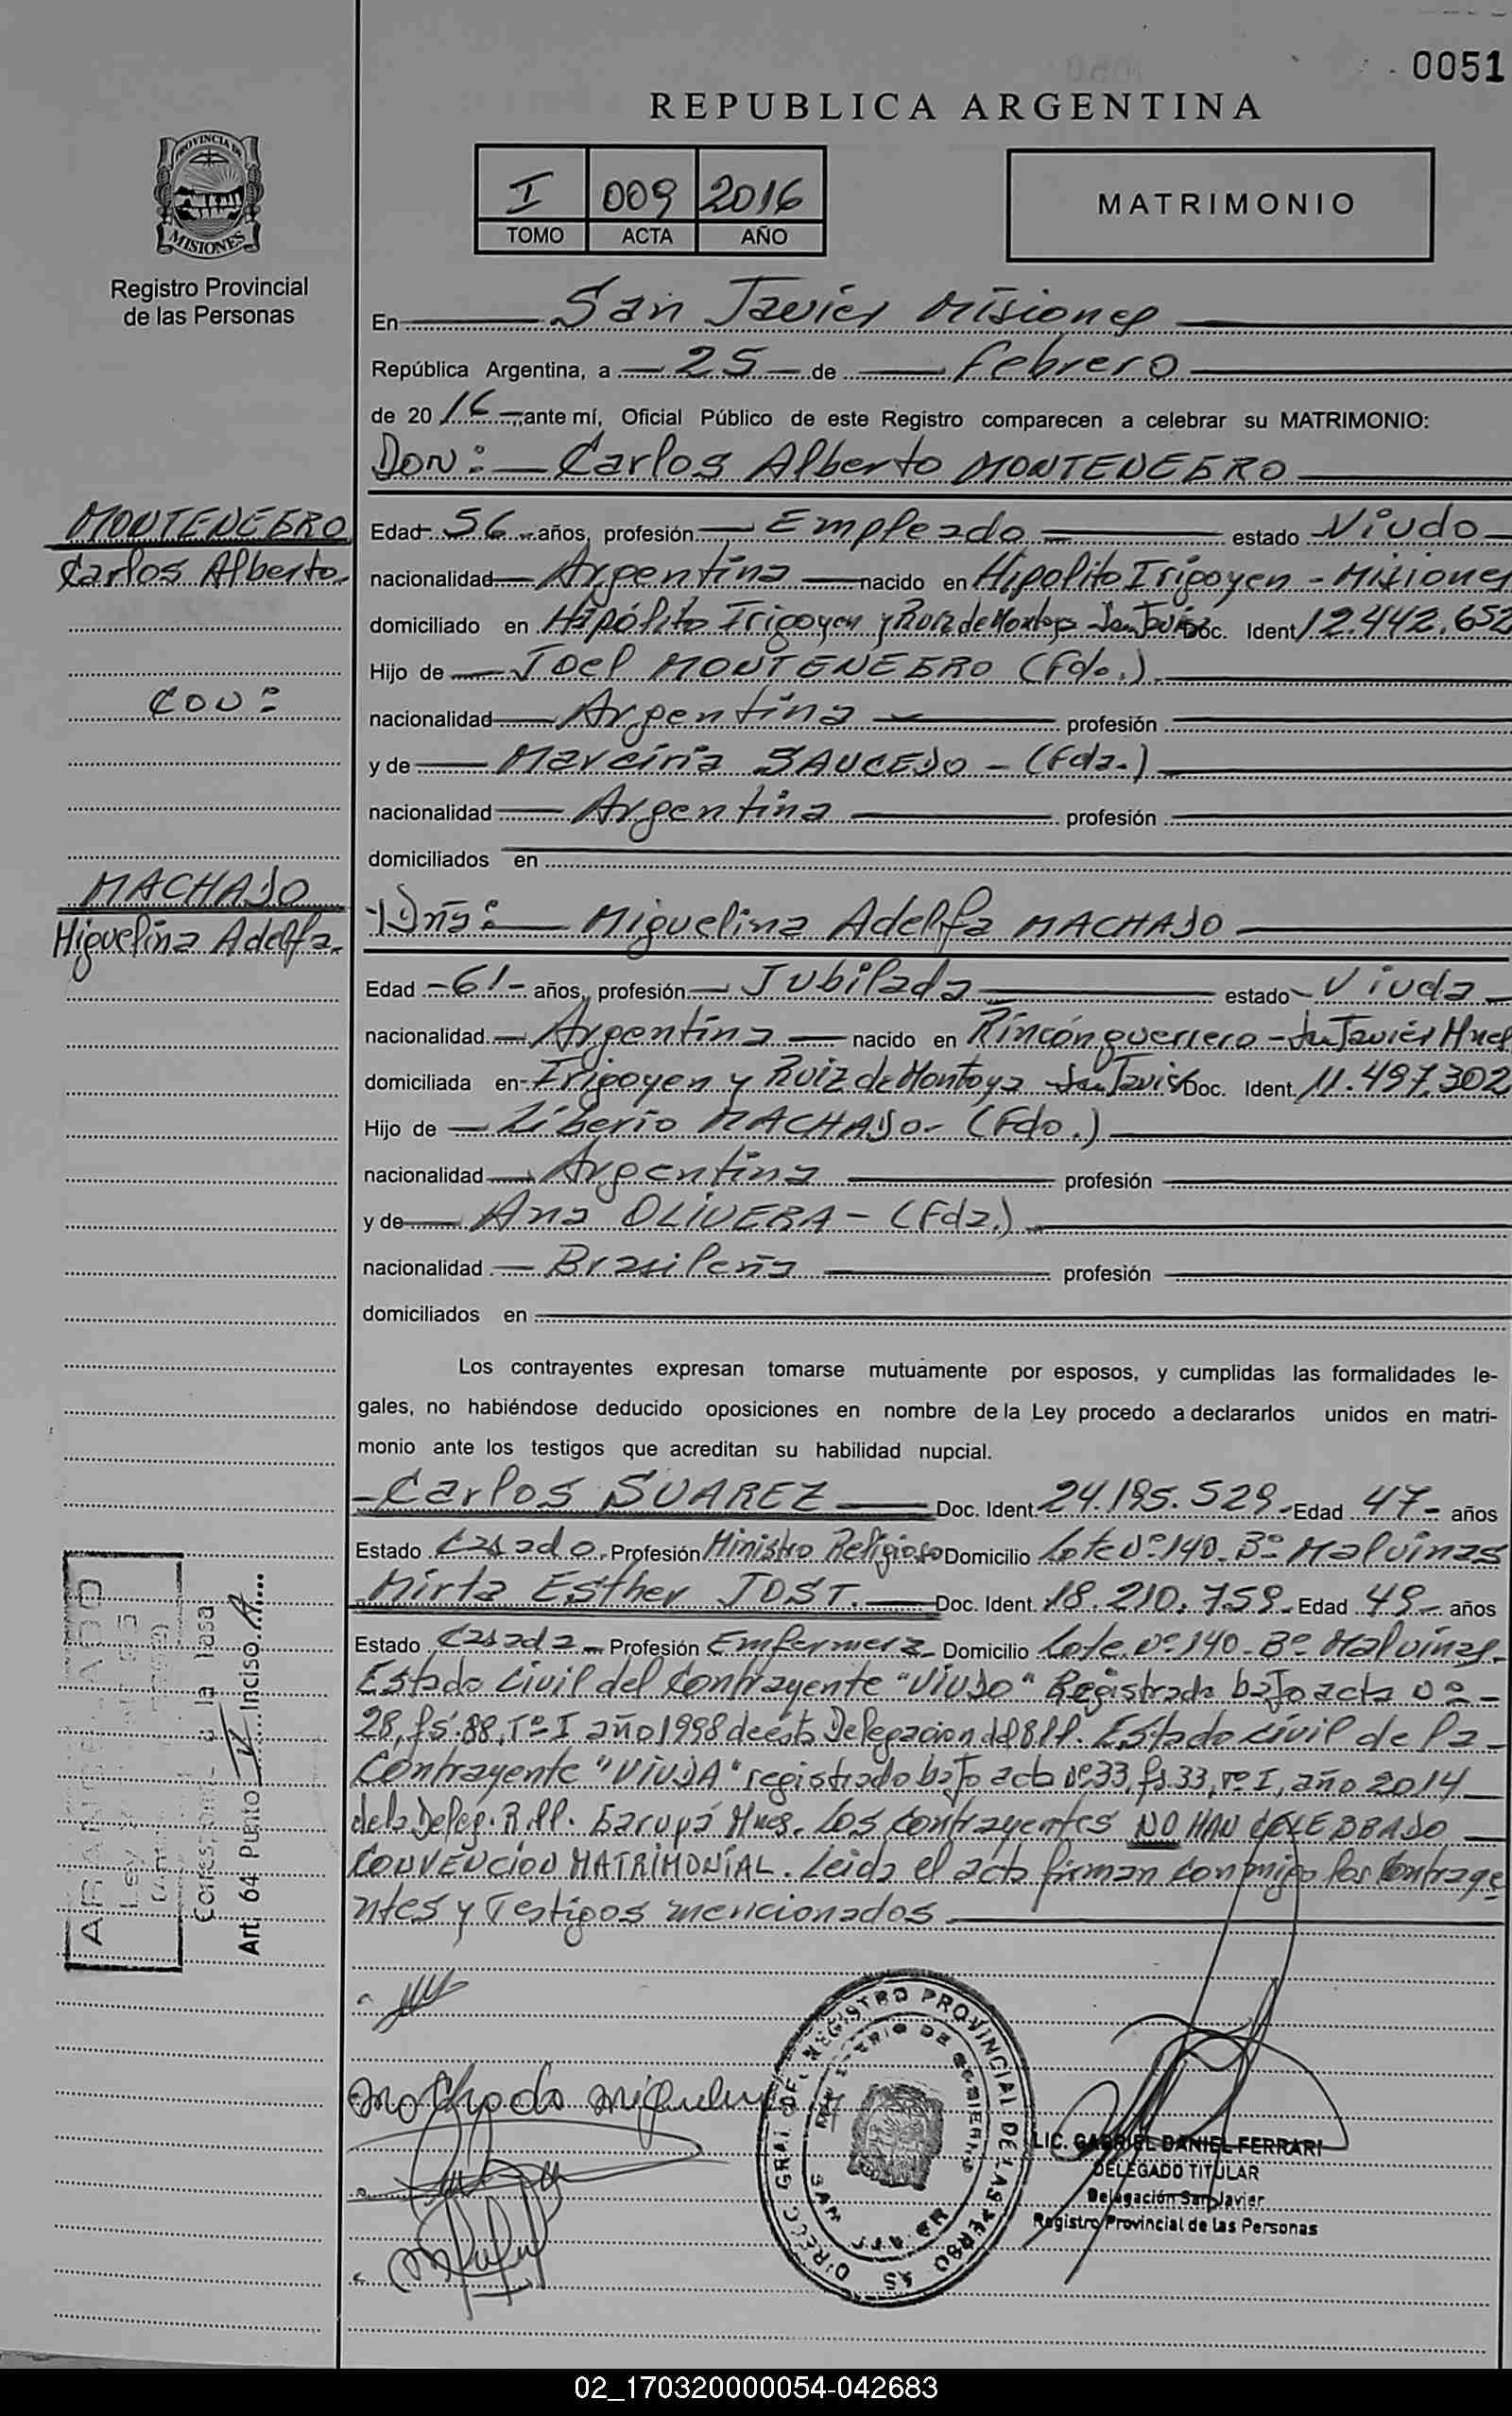 0051
REPUBLICA ARGENTINA
PROVINCIA DE
MISIONES
Registro Provincial
de las Personas
I 009 2016
TOMO ACTA AÑO
MATRIMONIO
En San Javier Misiones
República Argentina, a 25 de febrero
de 2016, ante mí, Oficial Público de este Registro comparecen a celebrar su MATRIMONIO:
DON: Carlos Alberto MONTENEGRO
MONTENEGRO
Carlos Alberto
CON:
Edad 56 años, profesión Empleado estado Viudo
nacionalidad Argentina nacido en Hipolito Irigoyen - Misiones
domiciliado en Hipólito Irigoyen y Ruiz de Montoya San Javier Doc. Ident 12.442.652
Hijo de Joel MONTENEGRO (Fdo.)
nacionalidad Argentina profesión
y de Marcina SAUCEDO - (Fda.)
nacionalidad Argentina profesión
domiciliados en
MACHADO
Miguelina Adelfa
Dña: Miguelina Adelfa MACHADO
Edad 61 años, profesión Jubilada estado Viuda
nacionalidad Argentina nacido en Rincón guerrero - San Javier Mnes
domiciliada en Irigoyen y Ruiz de Montoya San Javier Doc. Ident 11.497.302
Hijo de Liberio MACHADO - (Fdo.)
nacionalidad Argentina profesión
y de Ana OLIVERA - (Fda.)
nacionalidad Brasileña profesión
domiciliados en
Los contrayentes expresan tomarse mutuamente por esposos, y cumplidas las formalidades le-
gales, no habiéndose deducido oposiciones en nombre de la Ley procedo a declararlos unidos en matri-
monio ante los testigos que acreditan su habilidad nupcial.
Carlos SUAREZ Doc. Ident. 24.195.529 Edad 47 años
Estado Casado Profesión Ministro Religioso Domicilio Lote Nº 140. Bº Malvinas
Mirta Esther JOST. Doc. Ident. 18.210.759 Edad 49 años
Estado Casada Profesión Enfermera Domicilio Lote Nº 140 - Bº Malvinas
Estado Civil del Contrayente "VIUDO" Registrado bajo acta Nº -
28, fs. 88, Tº I año 1998 de esta Delegacion del R.PP. Estado civil de la
Contrayente "VIUDA" registrado bajo acta Nº 33, fs. 33, Tº I, año 2014
de la Deleg. R.PP. Garupá Mnes. Los contrayentes NO HAN CELEBRADO
CONVENCIÓN MATRIMONIAL. Leida el acta firman conmigo los Contraye
ntes y Testigos mencionados
ARANCELADO
Ley
Corresponde a la tasa
Art. 64 Punto IV Inciso A
Machado Miguelina
DIRECC. GRAL. DEL REGISTRO PROVINCIAL DE LAS PERSONAS
MINISTERIO DE GOBIERNO
SAN JAVIER
LIC. GABRIEL DANIEL FERRARI
DELEGADO TITULAR
Delegación San Javier
Registro Provincial de las Personas
02_170320000054-042683